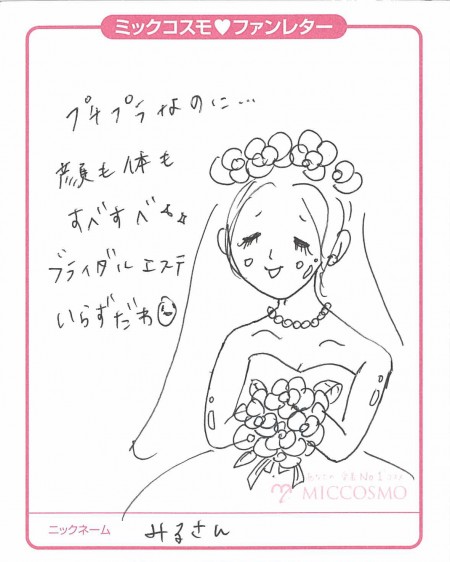 ミックコスモ♥ファンレター
プチプラなのに…
顔も体も
すべすべ♪♪
ブライダルエステ
いらずだわ
MICCOSMO
ニックネーム
みるさん